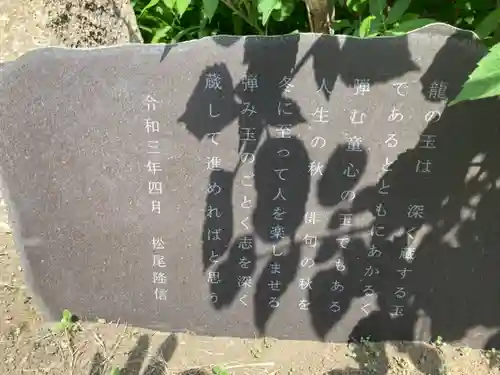 龍の玉は　深く蔵する玉
であるとともにあかるく
弾む童心の玉でもある
人生の秋　俳句の秋を
冬に至って人を楽しませる
弾み玉のごとく志を深く
蔵して進めればと思う
令和三年四月　松尾隆信